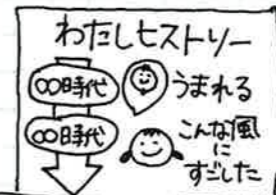 わたしヒストリー
○○時代
うまれる
○○時代
こんな風
に
すごした